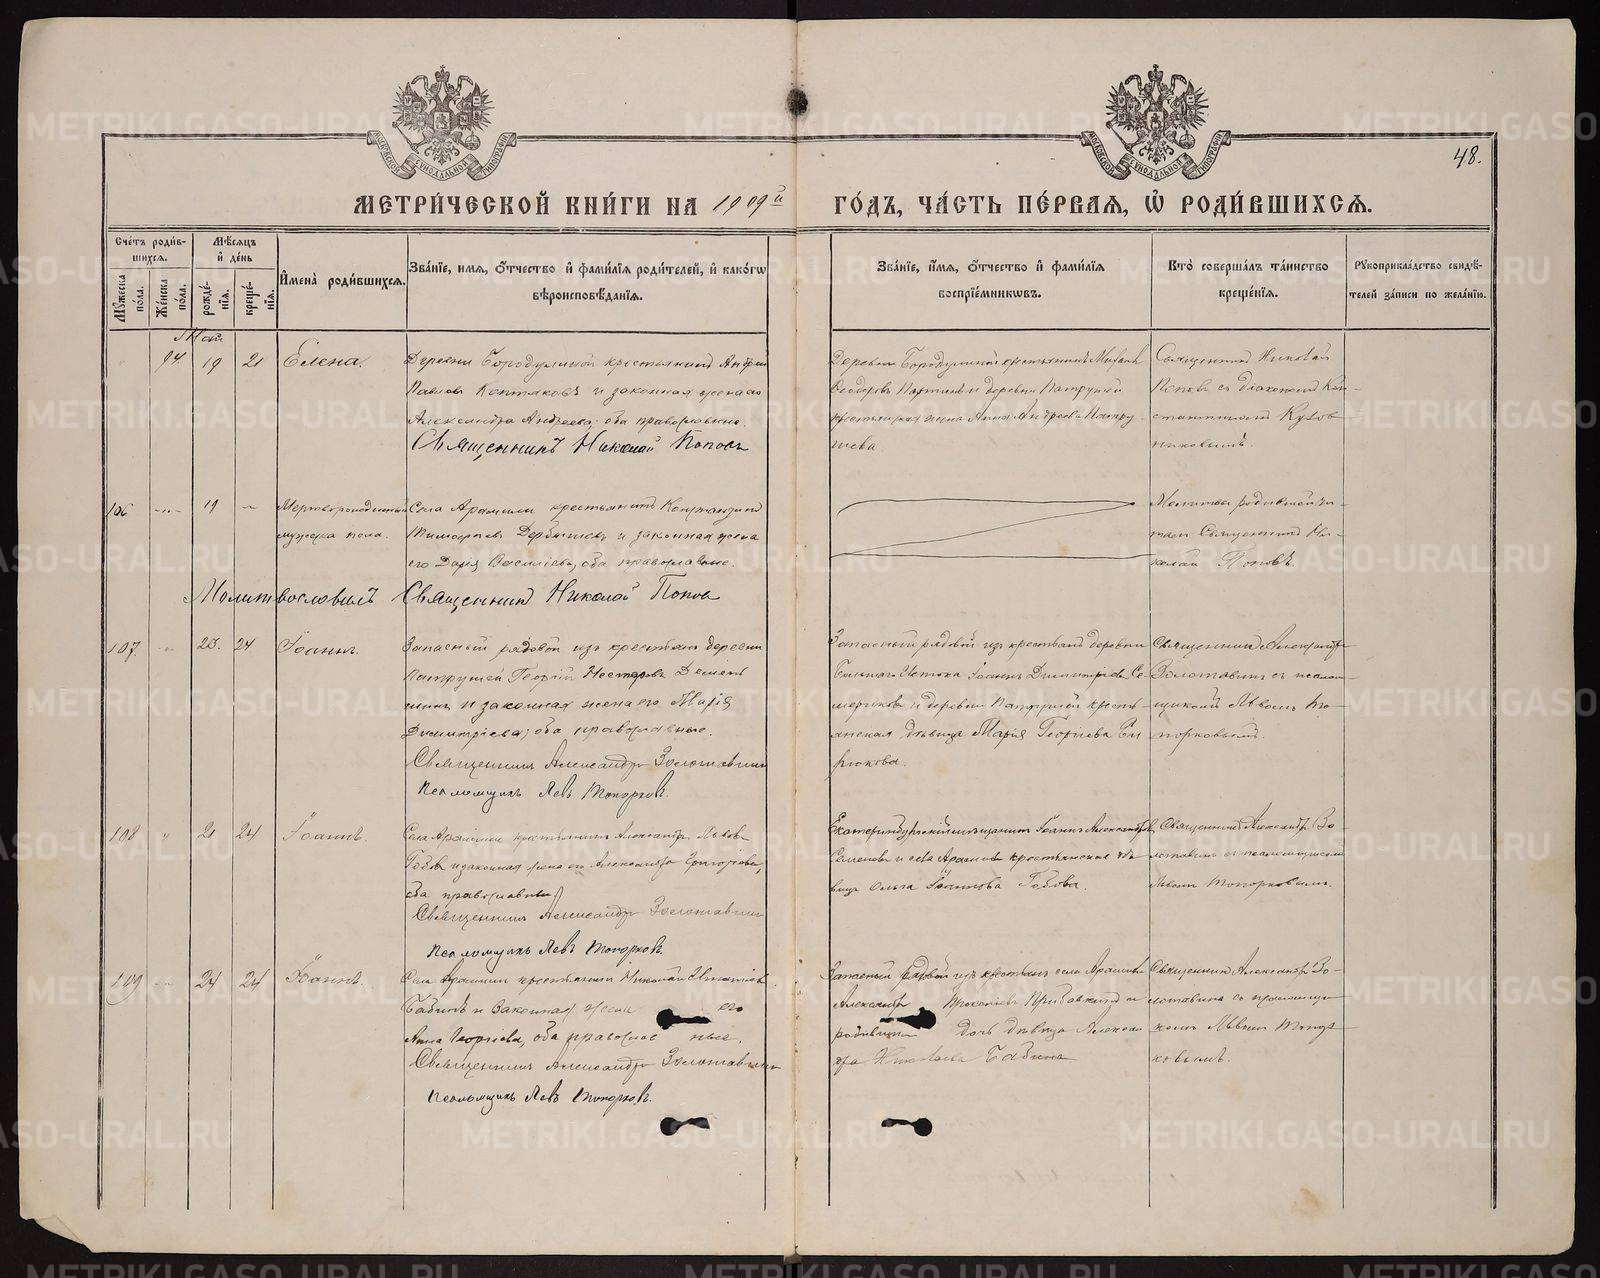 48.
МЕТРИ́ЧЕСКОЙ КНИ́ГИ НА 1909й ГО́ДЪ, ЧА́СТЬ ПЕ́РВАЯ, Ѡ РОДИ́ВШИХСЯ.
Сче́тъ роди́вшихся.
Мѣ́сяцъ и де́нь
Му́жеска по́ла.
Же́нска по́ла.
рожде́нїя.
креще́нїя.
И҆мена̀ роди́вшихся.
Зва́нїе, имя, ѻ҆́тчество и҆ фами́лїя роди́телей, и҆ како́гѡ
вѣроисповѣ́данїя.
Зва́нїе, и҆́мя, ѻ҆́тчество и҆ фами́лїя
воспрїе́мникѡвъ.
Кто̀ соверша́лъ та́инство
креще́нїя.
Рꙋкоприкла́дство свидѣ́-
телей за́писи по жела́нїю.
Мая
94. 19 21 Елена.
Деревни Бородулиной крестьянинъ Андрей
Павловъ Коптяковъ и законная жена его
Александра Андреева, оба православные.
Священникъ Николай Поповъ
Деревни Бородулиной крестьянинъ Михаилъ
Ѳеодоровъ и деревни Патрушей
крестьянская жена Анна Андреева Патру
шева
Священникъ Николай
Поповъ съ діакономъ Кон-
стантиномъ Кузов
никовымъ.
106 19 Мертворожденный
мужеска пола.
Села Арамили крестьянинъ Константинъ
Тимофеевъ Дербышевъ и законная жена
его Дарія Васильева, оба православные.
Молитвословилъ Священникъ Николай Поповъ
Молитвы родившей чи-
талъ Священникъ Ни-
колай Поповъ.
107. 23. 24 Іоаннъ.
Запасный рядовой изъ крестьянъ деревни
Патрушей Георгій Несторовъ Демен
шинъ и законная жена его Марія
Димитріева, оба православные.
Священникъ Александръ Золотавинъ
Псаломщикъ Левъ Топорковъ.
Запасный рядовой изъ крестьянъ деревни
Большаго Истока Іоаннъ Димитріевъ Се-
мериковъ и деревни Патрушей кресть-
янская дѣвица Марія Георгіева Би
рюкова.
Священникъ Александръ
Золотавинъ съ псалом-
щикомъ Львомъ То-
порковымъ.
108 21 24 Іоаннъ.
Села Арамили крестьянинъ Александръ Львовъ
и законная жена его Александра Григорьева,
оба православные
Священникъ Александръ Золотавинъ
Псаломщикъ Левъ Топорковъ.
Екатеринбургскій мѣщанинъ Іоаннъ Александровъ
Семеновъ и села Арамили крестьянская дѣ-
вица Ольга Іоаннова
Священникъ Александръ Зо-
лотавинъ съ псаломщикомъ
Львомъ Топорковымъ.
109 24 24 Іоаннъ.
Села Арамили крестьянинъ Николай Игнатіевъ
Бабинъ и Законная жена его
Анна Георгіева, оба православные.
Священникъ Александръ Золотавинъ
Псаломщикъ Левъ Топорковъ.
Запасный рядовой изъ крестьянъ села Арамили
Александръ и
родивших дочь дѣвица Алексан
дра Николаева Бабина
Священникъ Александръ Зо-
лотавинъ съ псаломщи-
комъ Львомъ Топор
ковымъ.
METRIKI.GASO-URAL.RU